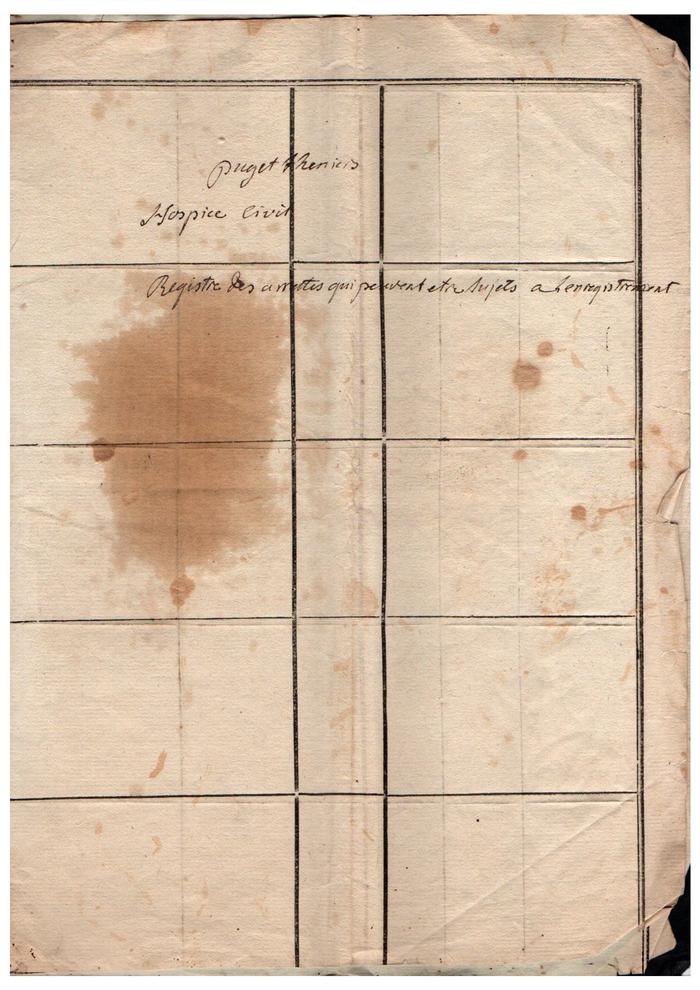 puget theniers
Hospice Civil
Registre des arrettes qui peuvent etre Sujets a L'enregistrement